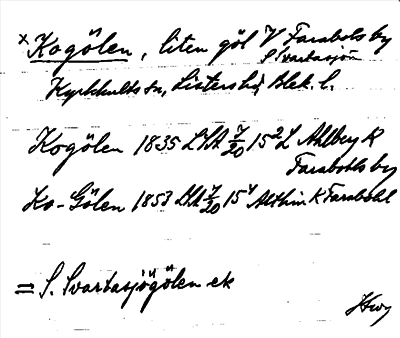 × Kogölen, liten göl V Farabols by
S Svartasjön
Kyrkhults sn, Listers hd, Blek. l.
Kogölen 1835 LSA 7/20 15² L Ahlberg K
Farabols by
Ko-Gölen 1853 LSA 7/20 15⁴ Althin K Farabohl
= S. Svartasjögölen ek